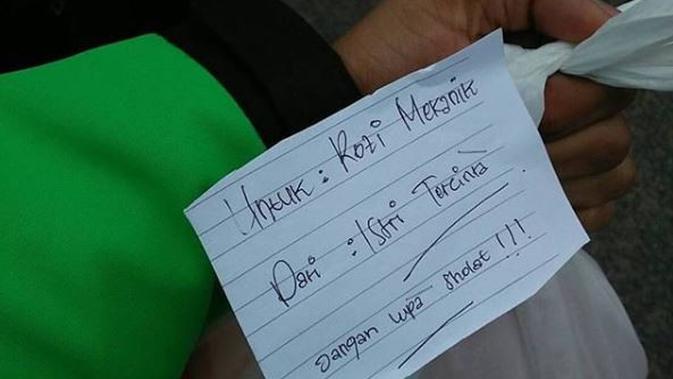 Untuk : Rozi Mekanik
Dari : Istri Tercinta
Jangan lupa sholat !!!